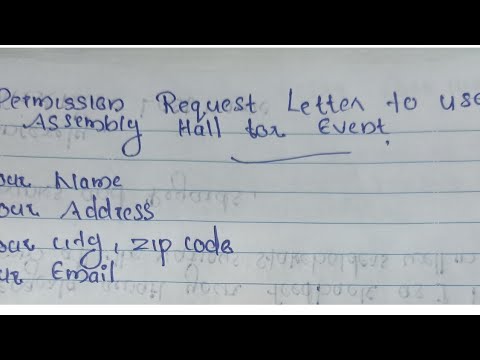 Permission Request Letter to use
Assembly Hall for Event.
our Name
our Address
our city, zip code
ur Email